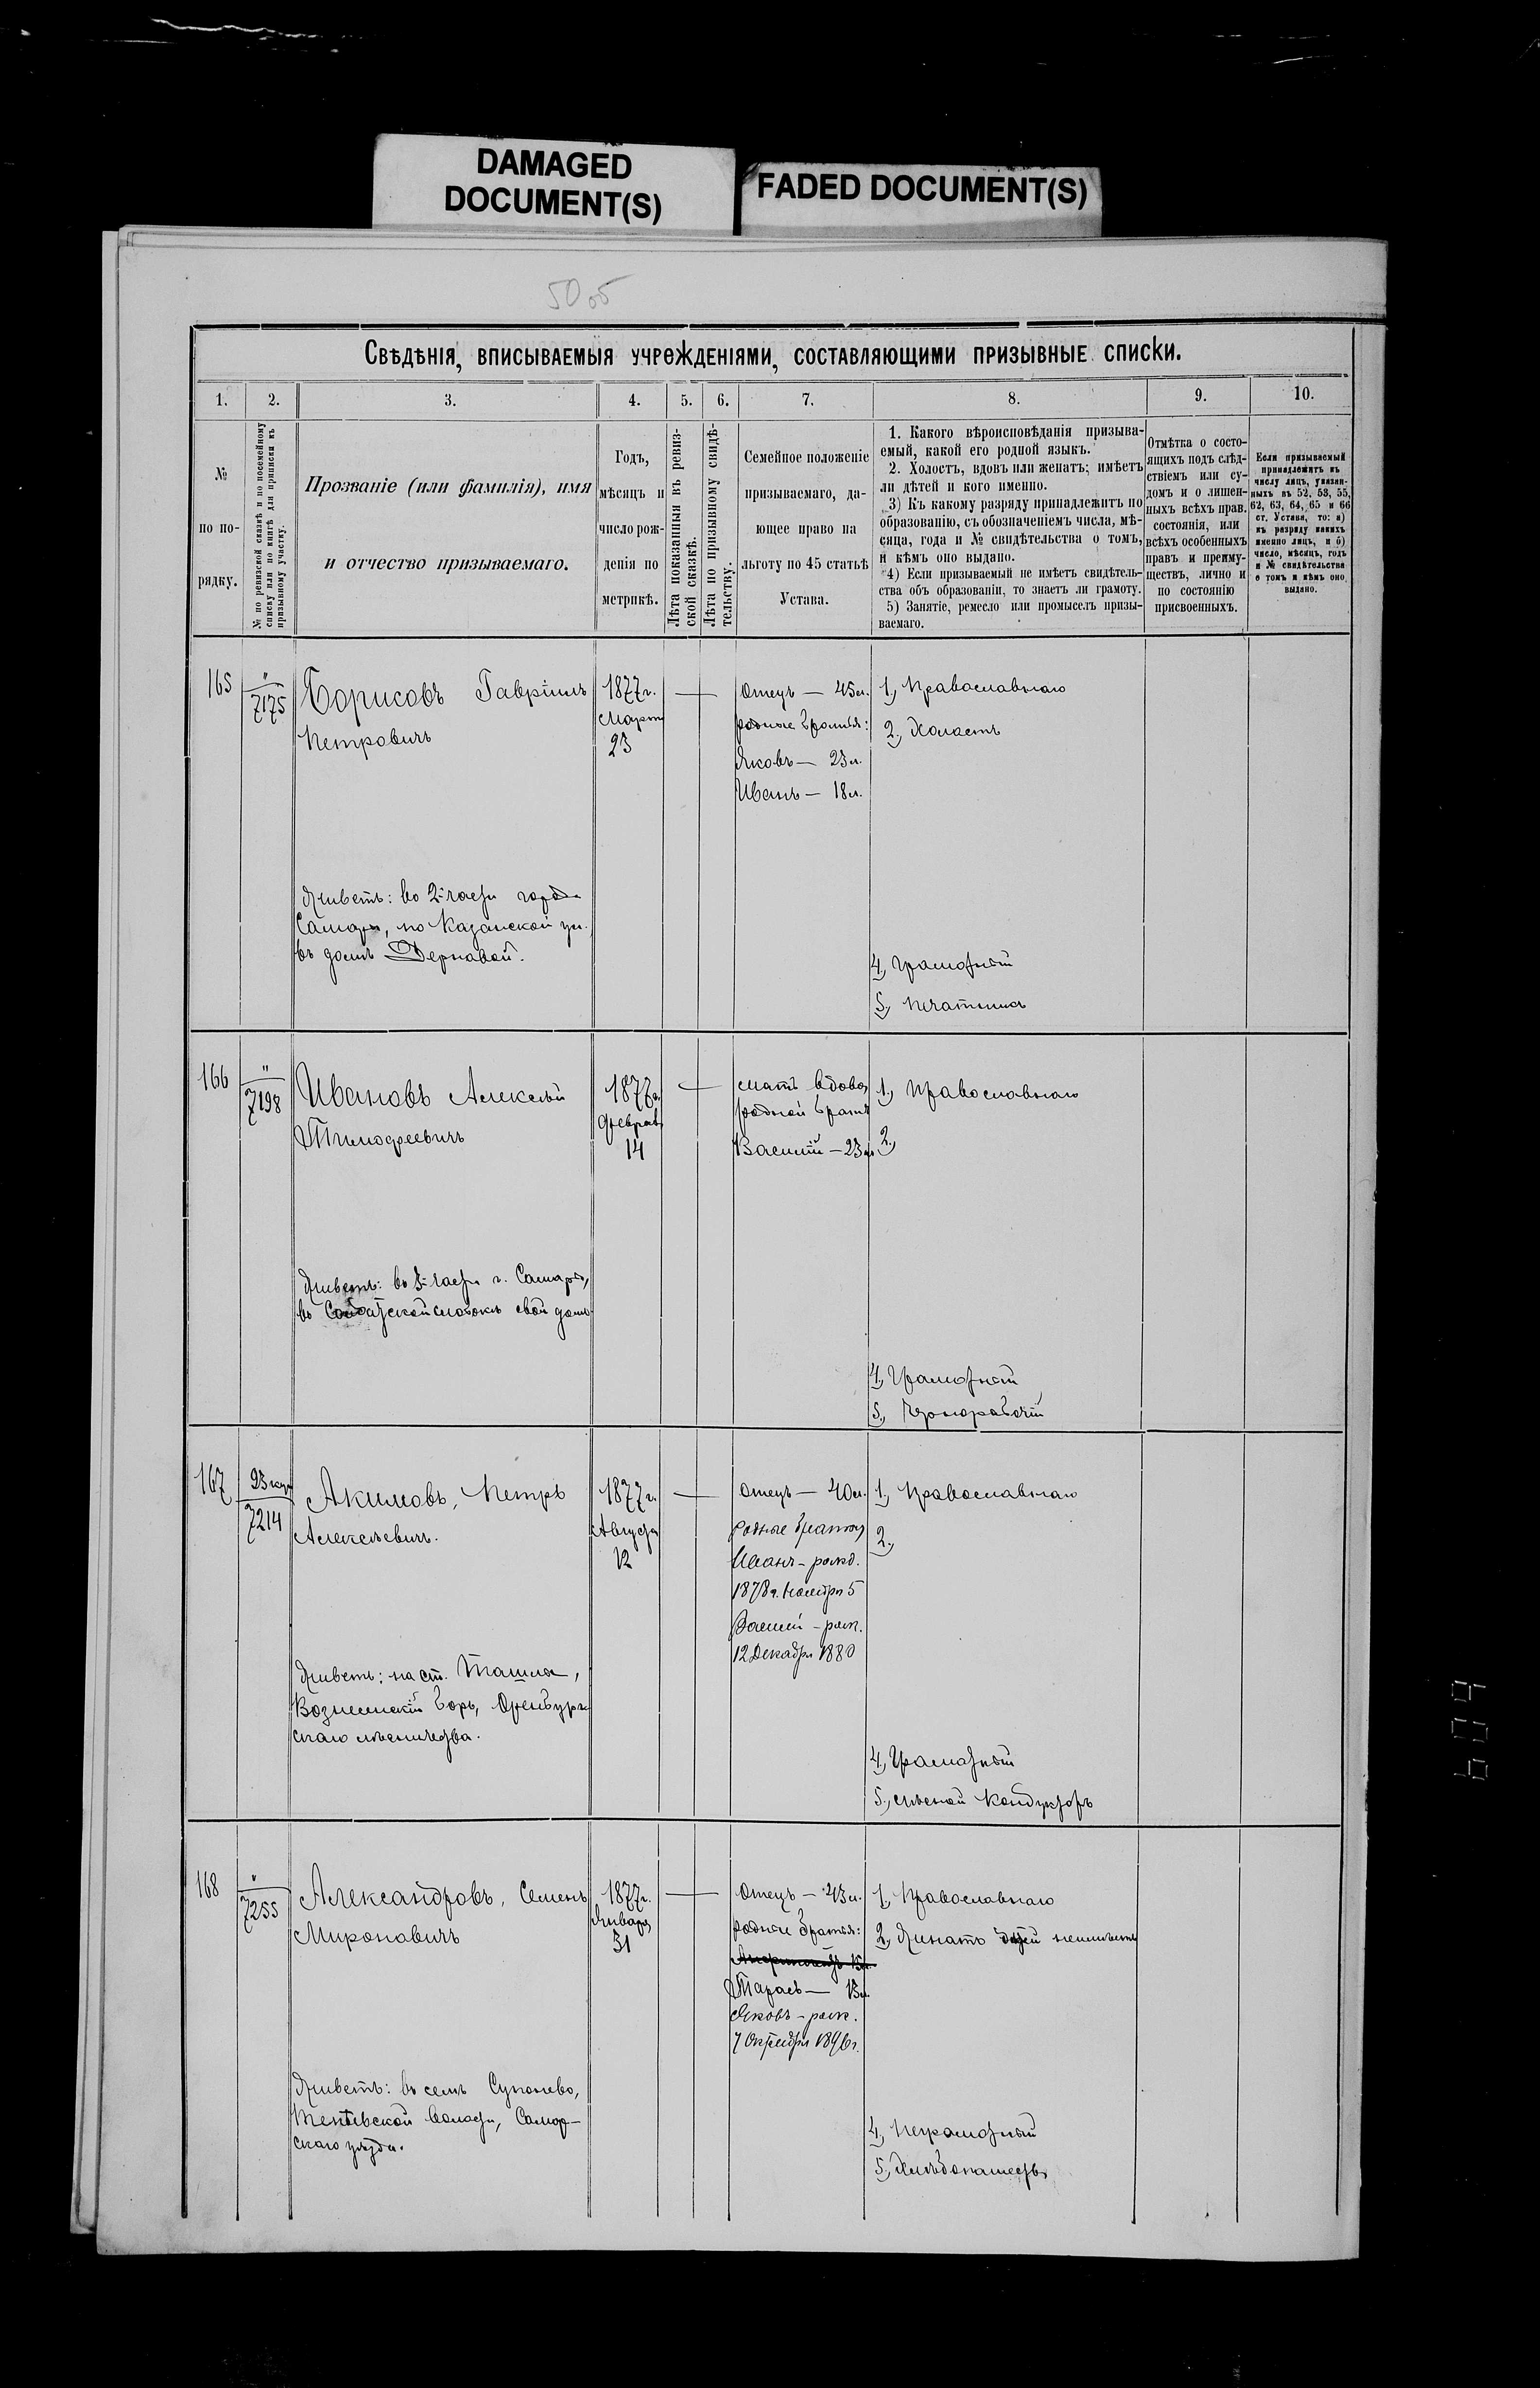 DAMAGED
DOCUMENT(S)
FADED DOCUMENT(S)
Свѣдѣнія, вписываемыя учрежденіями, составляющими призывные списки.
1. 2. 3. 4. 5. 6. 7. 8. 9. 10.
№
по по-
рядку.
№ по ревизской сказкѣ и по посемейному
списку или по книгѣ для приписки къ
призывному участку.
Прозваніе (или фамилія), имя
и отчество призываемаго.
Годъ,
мѣсяцъ и
число рож-
денія по
метрикѣ.
Лѣта показанныя въ ревиз-
ской сказкѣ.
Лѣта по призывному свидѣ-
тельству.
Семейное положеніе
призываемаго, да-
ющее право на
льготу по 45 статьѣ
Устава.
1. Какого вѣроисповѣданія призыва-
емый, какой его родной языкъ.
2. Холостъ, вдовъ или женатъ; имѣетъ
ли дѣтей и кого именно.
3) Къ какому разряду принадлежитъ по
образованію, съ обозначеніемъ числа, мѣ-
сяца, года и № свидѣтельства о томъ,
и кѣмъ оно выдано.
4) Если призываемый не имѣетъ свидѣтель-
ства объ образованіи, то знаетъ ли грамоту.
5) Занятіе, ремесло или промыселъ призы-
ваемаго.
Отмѣтка о состо-
ящихъ подъ слѣд-
ствіемъ или су-
домъ и о лишен-
ныхъ всѣхъ прав.
состоянія, или
всѣхъ особенныхъ
правъ и преиму-
ществъ, лично и
по состоянію
присвоенныхъ.
Если призываемый
принадлежитъ къ
числу лицъ, указан-
ныхъ въ 52, 53, 55,
62, 63, 64, 65 и 66
ст. Устава, то: а)
къ разряду какихъ
именно лицъ, и б)
число, мѣсяцъ, годъ
и № свидѣтельства
о томъ и кѣмъ оно
выдано.
165
"
7175
Борисовъ Гавріилъ
Петровичъ
1877г.
Март
23
Отецъ — 45л.
родные братья:
Яковъ — 23л.
Иванъ — 18л.
1, Православнаго
2, Холостъ
Живетъ: во 2й части города
Самары, по Казанской ул.
въ домѣ
4, Грамотный
5,
166
"
7198
Ивановъ Алексѣй
Тимофеевичъ
1877г.
Февраля
14
Мать вдова,
родной братъ
Василій — 23л.
1, Православнаго
2,
Живетъ: въ части г. Самары,
въ Солдатской слободкѣ свой домъ
4, Грамотный
5, Чернорабочій
167
7214
Акимовъ, Петръ
Алексѣевичъ.
1877г.
Августа
12
Отецъ — 40л.
родные братья
рожд.
1878г. Ноября 5
Василій – рож.
12 Декабря 1880
1, Православнаго
2,
Живетъ: на ст. Ташла,
Вознесенскій боръ, Оренбург-
скаго лѣсничества.
4, Грамотный
5, Лѣсной Кондукторъ
168
"
7255
Александровъ, Семенъ
Мироновичъ
1877г.
Января
31
Отецъ — 43л.
родные братья:
Тарасъ — 13л.
Яковъ – рож.
7 Октября 1896г.
1, Православнаго
2, Женатъ дѣтей неимѣетъ
Живетъ: въ селѣ Супонево,
волости, Самар-
скаго уѣзда.
4, Неграмотный
5, Хлѣбопашество
609